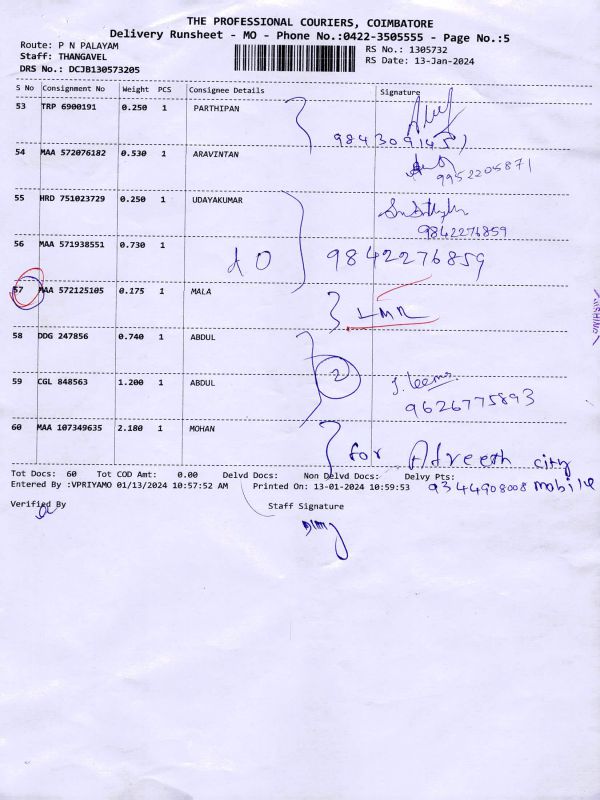 THE PROFESSIONAL COURIERS, COIMBATORE
Delivery Runsheet - MO - Phone No.:0422-3505555 - Page No.:5
Route: P N PALAYAM
Staff: THANGAVEL
DRS No.: DCJB130573205
RS No.: 1305732
RS Date: 13-Jan-2024
S No Consignment No Weight PCS Consignee Details Signature
53 TRP 6900191 0.250 1 PARTHIPAN
9843091451
54 MAA 572076182 0.530 1 ARAVINTAN
9952205871
55 HRD 751023729 0.250 1 UDAYAKUMAR
9842276859
56 MAA 571938551 0.730 1
9842276859
57 MAA 572125105 0.175 1 MALA
LMR
58 DDG 247856 0.740 1 ABDUL
2
59 CGL 848563 1.200 1 ABDUL
9626775893
60 MAA 107349635 2.180 1 MOHAN
for city
Tot Docs: 60 Tot COD Amt: 0.00 Delvd Docs: Non Delvd Docs: Delvy Pts:
9344908008 mobile
Entered By :VPRIYAMO 01/13/2024 10:57:52 AM Printed On: 13-01-2024 10:59:53
Verified By Staff Signature